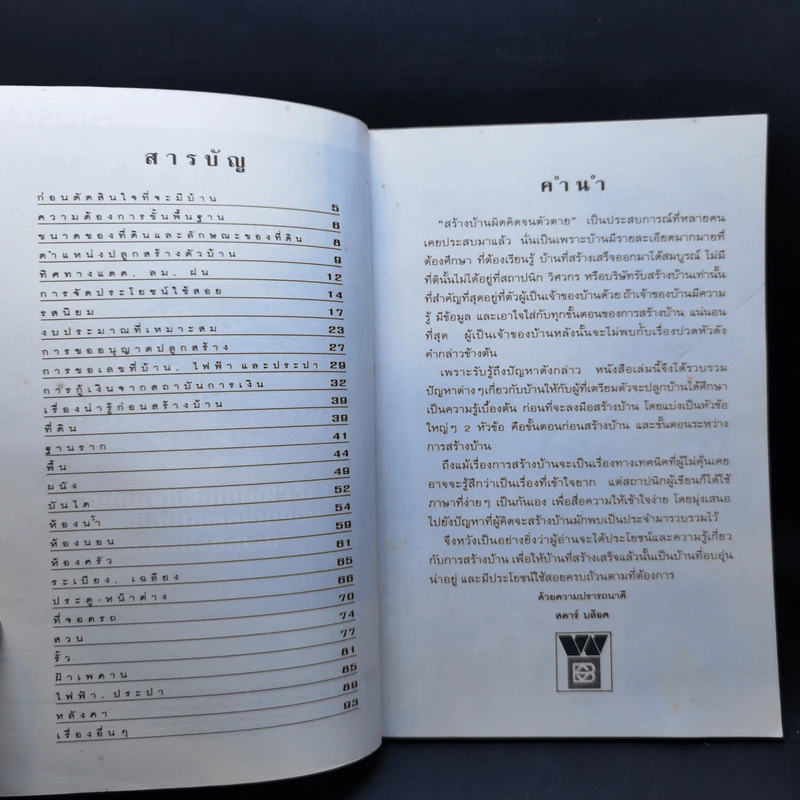 สารบัญ
ก่อนตัดสินใจที่จะมีบ้าน 5
ความต้องการขั้นพื้นฐาน 6
ขนาดของที่ดินและลักษณะของที่ดิน 8
ตำแหน่งปลูกสร้างตัวบ้าน 9
ทิศทางแดด, ลม, ฝน 12
การจัดประโยชน์ใช้สอย 14
รสนิยม 17
งบประมาณที่เหมาะสม 23
การขออนุญาตปลูกสร้าง 27
การขอเลขที่บ้าน, ไฟฟ้า และประปา 29
การกู้เงินจากสถาบันการเงิน 32
เรื่องน่ารู้ก่อนสร้างบ้าน 39
ที่ดิน 39
ฐานราก 41
พื้น 44
ผนัง 49
บันได 52
ห้องน้ำ 54
ห้องนอน 59
ห้องครัว 61
ระเบียง, เฉลียง 65
ประตู-หน้าต่าง 66
ที่จอดรถ 70
สวน 74
รั้ว 77
ฝ้าเพดาน 81
ไฟฟ้า, ประปา 85
หลังคา 89
เรื่องอื่นๆ 93
คำนำ
"สร้างบ้านผิดคิดจนตัวตาย" เป็นประสบการณ์ที่หลายคน
เคยประสบมาแล้ว นั่นเป็นเพราะบ้านมีรายละเอียดมากมายที่
ต้องศึกษา ที่ต้องเรียนรู้ บ้านที่สร้างเสร็จออกมาได้สมบูรณ์ ไม่มี
ที่ตินั้นไม่ได้อยู่ที่สถาปนิก วิศวกร หรือบริษัทรับสร้างบ้านเท่านั้น
ที่สำคัญที่สุดอยู่ที่ตัวผู้เป็นเจ้าของบ้านด้วย ถ้าเจ้าของบ้านมีความ
รู้ มีข้อมูล และเอาใจใส่กับทุกขั้นตอนของการสร้างบ้าน แน่นอน
ที่สุด ผู้เป็นเจ้าของบ้านหลังนั้นจะไม่พบกับเรื่องปวดหัวดัง
คำกล่าวข้างต้น
เพราะรับรู้ถึงปัญหาดังกล่าว หนังสือเล่มนี้จึงได้รวบรวม
ปัญหาต่างๆเกี่ยวกับบ้านให้กับผู้ที่เตรียมตัวจะปลูกบ้านได้ศึกษา
เป็นความรู้เบื้องต้น ก่อนที่จะลงมือสร้างบ้าน โดยแบ่งเป็นหัวข้อ
ใหญ่ๆ 2 หัวข้อ คือขั้นตอนก่อนสร้างบ้าน และขั้นตอนระหว่าง
การสร้างบ้าน
ถึงแม้เรื่องการสร้างบ้านจะเป็นเรื่องทางเทคนิคที่ผู้ไม่คุ้นเคย
อาจจะรู้สึกว่าเป็นเรื่องที่เข้าใจยาก แต่สถาปนิกผู้เขียนก็ได้ใช้
ภาษาที่ง่ายๆ เป็นกันเอง เพื่อสื่อความให้เข้าใจง่าย โดยมุ่งเสนอ
ไปยังปัญหาที่ผู้คิดจะสร้างบ้านมักพบเป็นประจำมารวบรวมไว้
จึงหวังเป็นอย่างยิ่งว่าผู้อ่านจะได้ประโยชน์และความรู้เกี่ยว
กับการสร้างบ้าน เพื่อให้บ้านที่สร้างเสร็จแล้วนั้นเป็นบ้านที่อบอุ่น
น่าอยู่ และมีประโยชน์ใช้สอยครบถ้วนตามที่ต้องการ
ด้วยความปรารถนาดี
สตาร์ บล๊อค